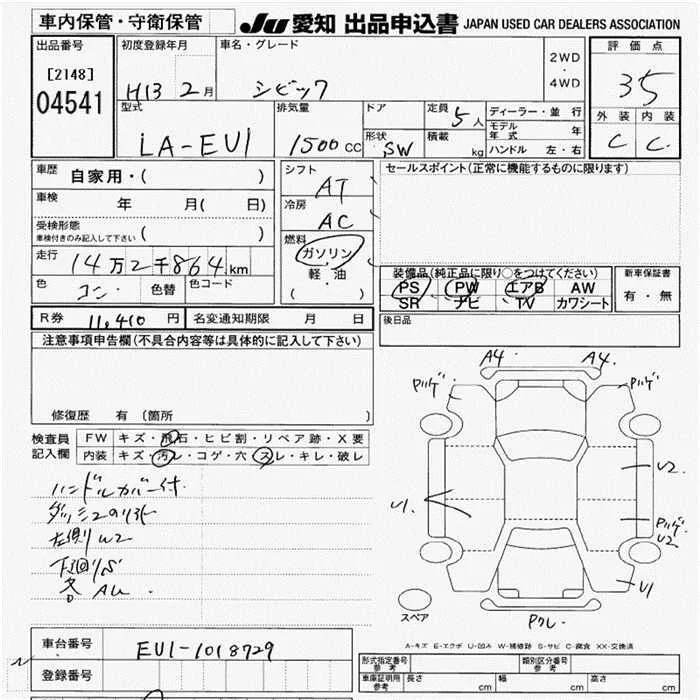 車内保管・守衛保管
JU 愛知 出品申込書 JAPAN USED CAR DEALERS ASSOCIATION
出品番号
[2148]
04541
初度登録年月
H13 2月
車名・グレード
シビック
2WD
・
4WD
評価点
35
外装 内装
C C
型式
LA-EU1
排気量
1500cc
ドア
形状
SW
定員
5人
積載
kg
ディーラー・並行
モデル年式 年
ハンドル 左・右
車歴
自家用・( )
車検
年 月( 日)
受検形態
車検付きのみ記入して下さい ( )
走行
14万2千864km
色
コン
色替
色コード
シフト
AT
冷房
AC
燃料
ガソリン
軽・油
( )
セールスポイント(正常に機能するものに限ります)
装備品(純正品に限り○をつけてください)
PS PW エアB AW
SR ナビ TV カワシート
新車保証書
有・無
後日品
R券 11,410円
名変通知期限 月 日
注意事項申告欄(不具合内容等は具体的に記入して下さい)
修復歴 有(箇所 )
検査員
記入欄
FW キズ・飛石・ヒビ割・リペア跡・X要
内装 キズ・汚レ・コゲ・穴・スレ・キレ・破レ
ハンドルカバー付
左側U2
下回りS
各AU
A4 A4
Pハゲ
Pハゲ
U2
Pハゲ
U2
U1
U1
Pワレ
スペア
A-キズ E-エクボ U-凹み W-補修跡 S-サビ C-腐食 XX-交換済
車台番号
EU1-1018729
登録番号
形式指定番号
参考
類別区分番号
参考
車庫証明用
参考
長さ cm
幅 cm
高さ cm